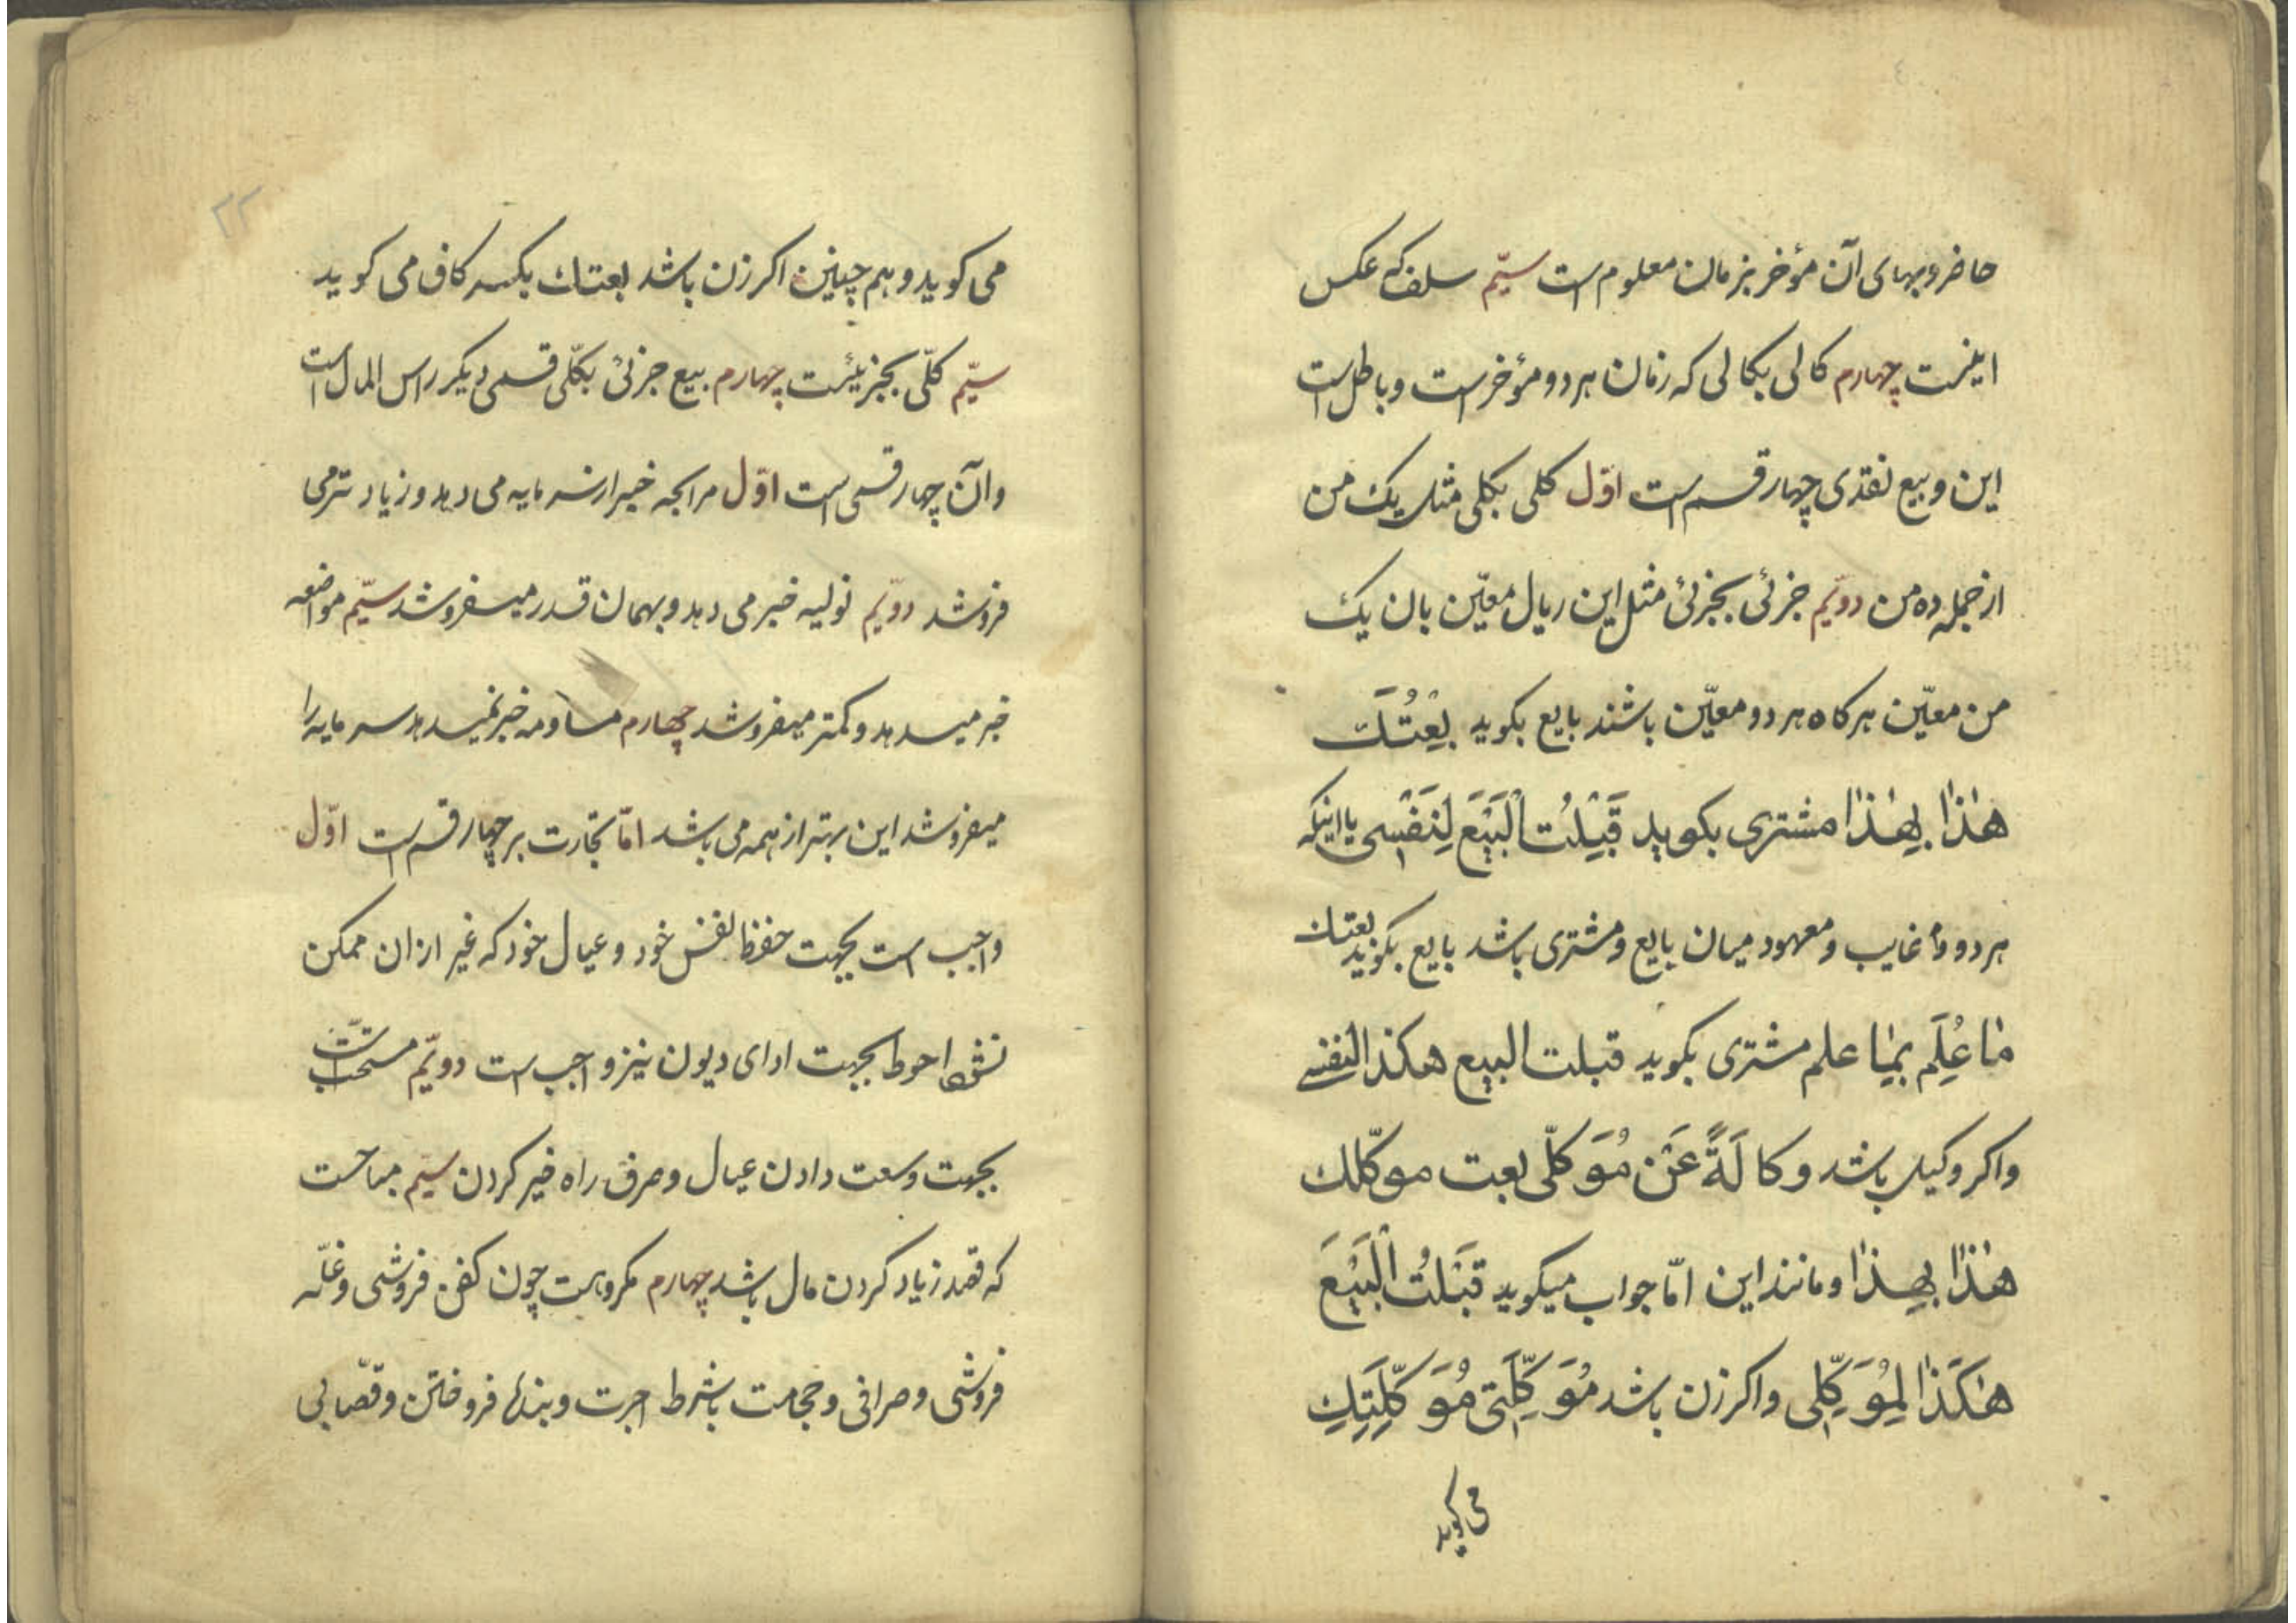 حاضر و بهای آن مؤخر بزمان معلوم است سیّم سلف که عکس
اینست چهارم کالی بکالی که زمان هر دو مؤخر است و باطل است
این و بیع نقدی چهار قسم است اوّل کلی بکلی مثل یک من
از جمله ده من دویّم جزئی بجزئی مثل این ریال معیّن بان یک
من معیّن هرکاه هر دو معیّن باشند بایع بکوید بِعْتُكَ
هٰذٰا بِهٰذٰا مشتری بکوید قَبِلْتُ الْبَیْعَ لِنَفْسِی یا اینکه
هر دو غایب و معهود میان بایع و مشتری باشد بایع بکوید بعتك
مٰا عُلِمَ بِمٰا علم مشتری بکوید قبلت البیع هکذا لنفسی
و اکر وکیل باشد وکالَةً عَنْ مُوَکلّی بعت موکّلك
هٰذٰا بِهٰذٰا و مانند این امّا جواب میکوید قَبِلْتُ الْبَیْعَ
هٰکَذٰا لِمُوَکِّلِی و اکر زن باشد مُوَکِّلَتی مُوَکِّلَتِكِ
می کوید
۲۲
می کوید و هم چنین اکر زن باشد بعتك بکسر کاف می کوید
سیّم کلّی بجزئیست چهارم بیع جزئی بکلّی قسمی دیکر راس المال است
و آن چهار قسمی است اوّل مرابحه خبر از سرمایه می دهد و زیادتر می
فروشد دویّم تولیه خبر می دهد و بهمان قدر میفروشد سیّم مواضعه
خبر میدهد و کمتر میفروشد چهارم مساومه خبر نمیدهد سرمایه را
میفروشد این بهتر از همه می باشد امّا تجارت بر چهار قسم است اوّل
واجب است بجهت حفظ نفس خود و عیال خود که غیر از ان ممکن
نشود احوط بجهت ادای دیون نیز واجب است دویّم مستحبّ است
بجهت وسعت دادن عیال و صرف راه خیر کردن سیّم مباحست
که قصد زیاد کردن مال باشد چهارم مکروهست چون کفن فروشی و غلّه
فروشی و صرافی و حجامت بشرط اجرت و بندها فروختن و قصّابی